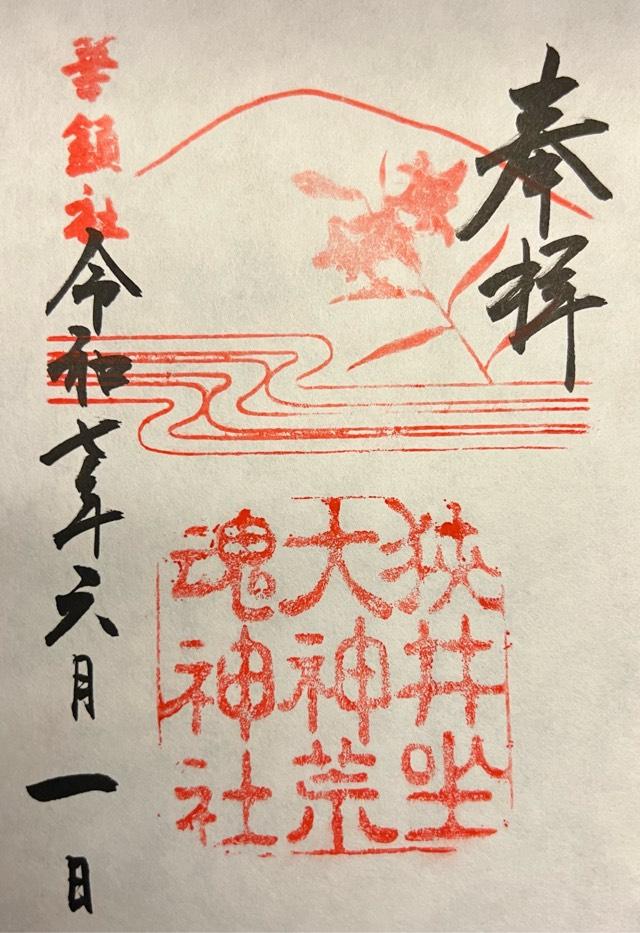 奉拝
狭井坐
大神荒
魂神社
華鎮社
令和七年六月一日